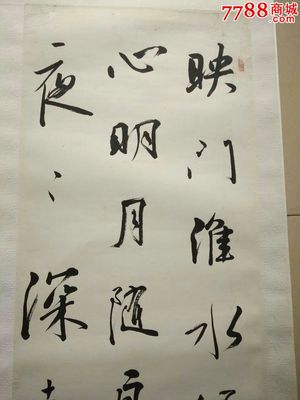 7788商城
映门淮水
心明月随
夜〻深